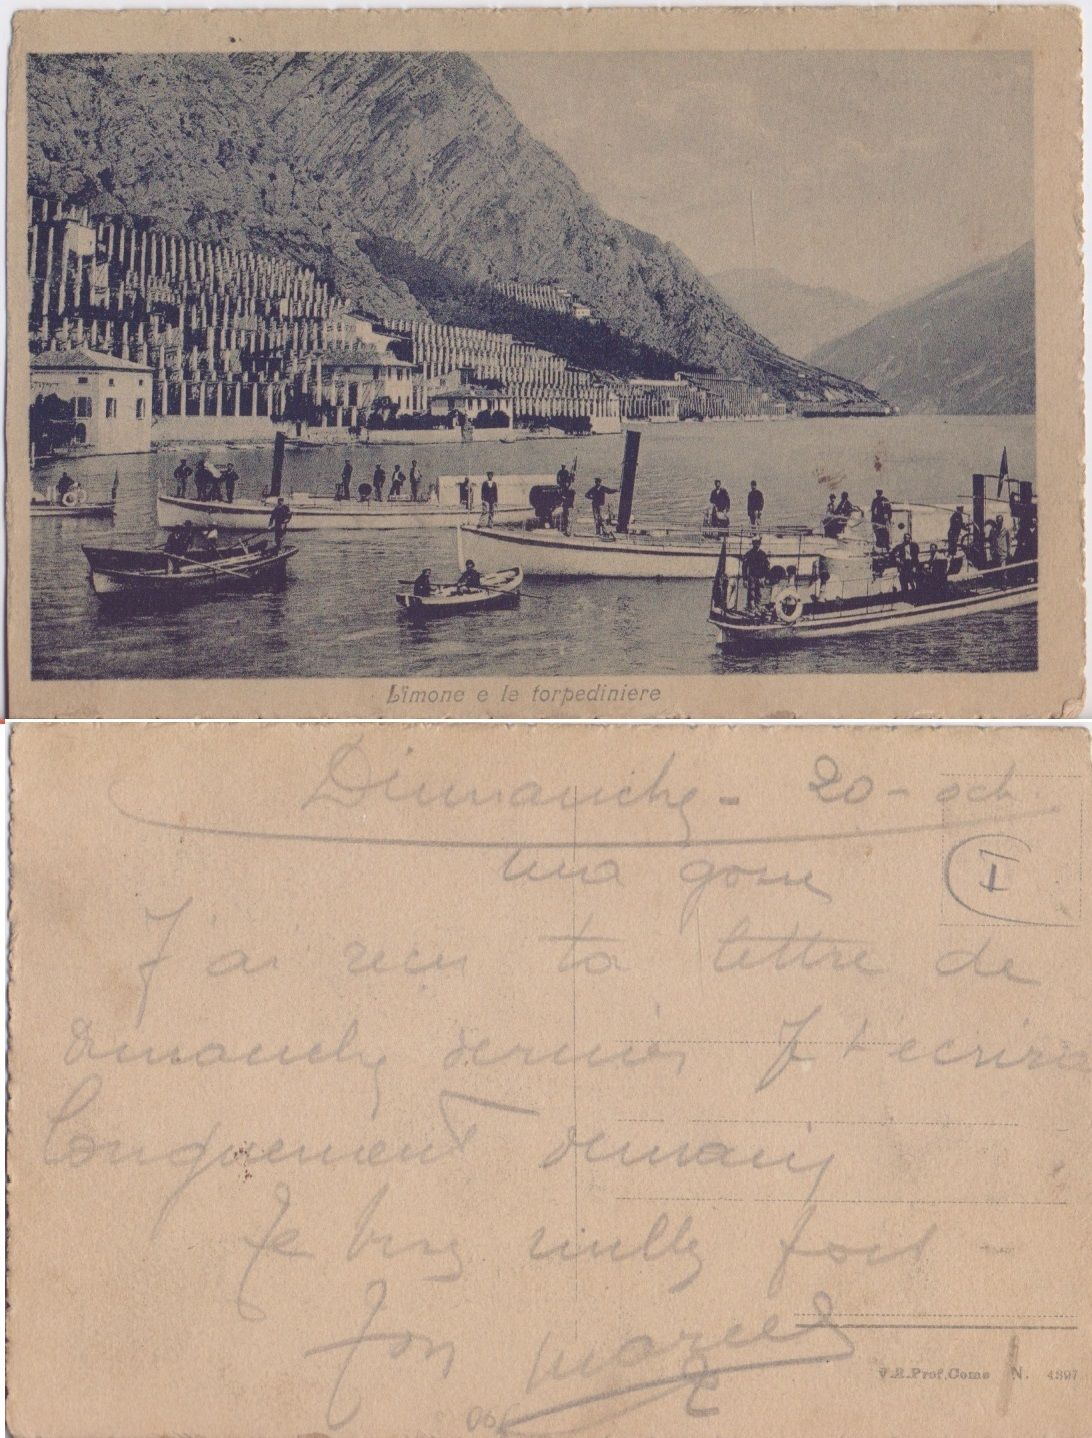 Limone e le torpediniere
Dimanche - 20 - oct.
I
ma gosse
J'ai reçu ta lettre de
dimanche dernier J t'écrirai
longuement demain
Te bise mille fois -
Ton Marcel
V.E.Prof.Como N. 4897